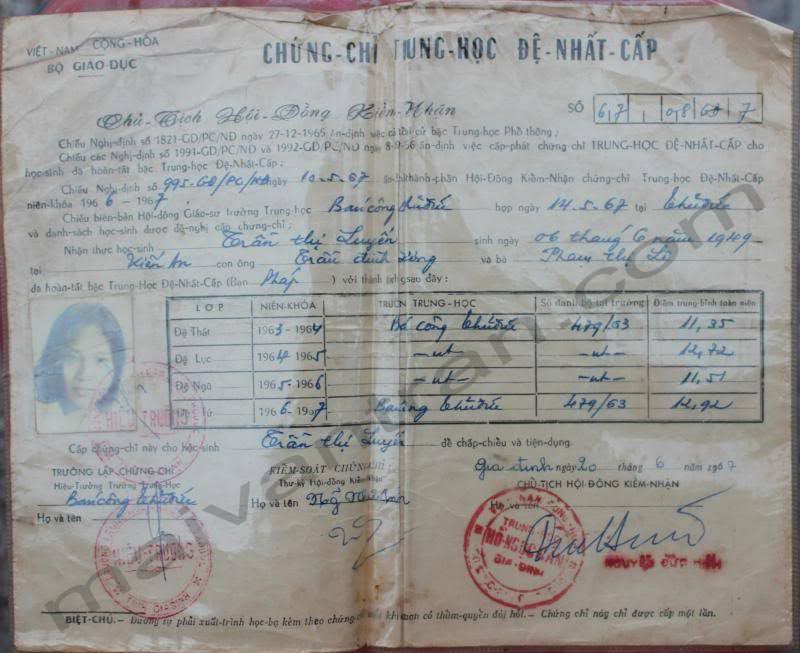 VIỆT-NAM CỘNG-HÒA
BỘ GIÁO-DỤC
CHỨNG-CHỈ TRUNG-HỌC ĐỆ-NHẤT-CẤP
Chủ-Tịch Hội-Đồng Kiểm-Nhận
SỐ 67
Chiếu Nghị-định số 1821-GD/PC/NĐ ngày 27-12-1965 ấn-định việc cải tổ bậc Trung-học Phổ thông;
Chiếu các Nghị-định số 1991-GD/PC/NĐ và 1992-GD/PC/NĐ ngày ấn-định việc cấp-phát chứng-chỉ TRUNG-HỌC ĐỆ-NHẤT-CẤP cho
học-sinh đã hoàn-tất bậc Trung-học Đệ-Nhất-Cấp;
Chiếu Nghị-định số 995-GD/PC/NĐ ngày 10.5.67 ấn-định thành-phần Hội-Đồng Kiểm-Nhận chứng-chỉ Trung-học Đệ-Nhất-Cấp
niên-khóa 1966-1967
Chiếu biên-bản Hội-đồng Giáo-sư trường Trung-học Bán công Thủ Đức họp ngày 14.5.67 tại Thủ Đức
và danh-sách học-sinh được đề-nghị cấp chứng-chỉ;
Nhận thực học-sinh Trần thị Luyến sinh ngày 06 tháng 6 năm 1949
tại Kiến An con ông Trần đình và bà Phạm thị
đã hoàn-tất bậc Trung-Học Đệ-Nhất-Cấp (Ban Pháp) với thành-tích sau đây:
LỚP NIÊN-KHÓA TRƯỜNG TRUNG-HỌC Số danh-bộ tại trường Điểm trung-bình toàn niên
Đệ Thất 1963-1964 Bán công Thủ Đức 479/63 11,35
Đệ Lục 1964-1965 -nt- -nt- 12,72
Đệ Ngũ 1965-1966 -nt- -nt- 11,51
Đệ Tứ 1966-1967 Bán công Thủ Đức 479/63 12,92
Cấp chứng-chỉ này cho học-sinh Trần thị Luyến để chấp-chiếu và tiện-dụng.
Gia định ngày 20 tháng 6 năm 1967
TRƯỜNG LẬP CHỨNG CHỈ
Hiệu-Trưởng Trường Trung-Học
Bán công Thủ Đức
Họ và tên
HIỆU-TRƯỞNG
KIỂM-SOÁT CHỨNG-CHỈ
Thư-ký Hội-đồng Kiểm-Nhận
Họ và tên
CHỦ-TỊCH HỘI-ĐỒNG KIỂM-NHẬN
Họ và tên
TRUNG HỌC
GIA-ĐỊNH
NGUYỄN ĐỨC
HIỆU TRƯỞNG
BIỆT-CHÚ.— Đương sự phải xuất-trình học-bạ kèm theo chứng-chỉ mỗi khi cơ-quan có thẩm-quyền đòi hỏi.— Chứng chỉ này chỉ được cấp một lần.
maivantran.com